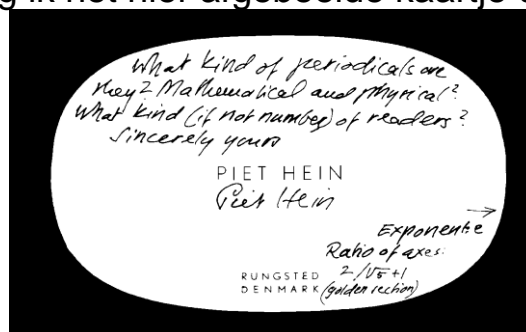 ik het hier afgebeelde kaartje
What kind of periodicals are
they? Mathematical and physical?
What kind (if not number) of readers?
Sincerely yours
PIET HEIN
Piet Hein
→
Exponent:e
Ratio of axes:
2/√5+1
(golden section)
RUNGSTED
DENMARK